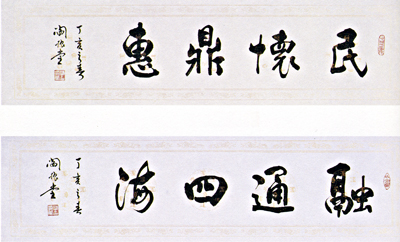 民懷鼎惠
丁亥之春
融通四海
丁亥之春